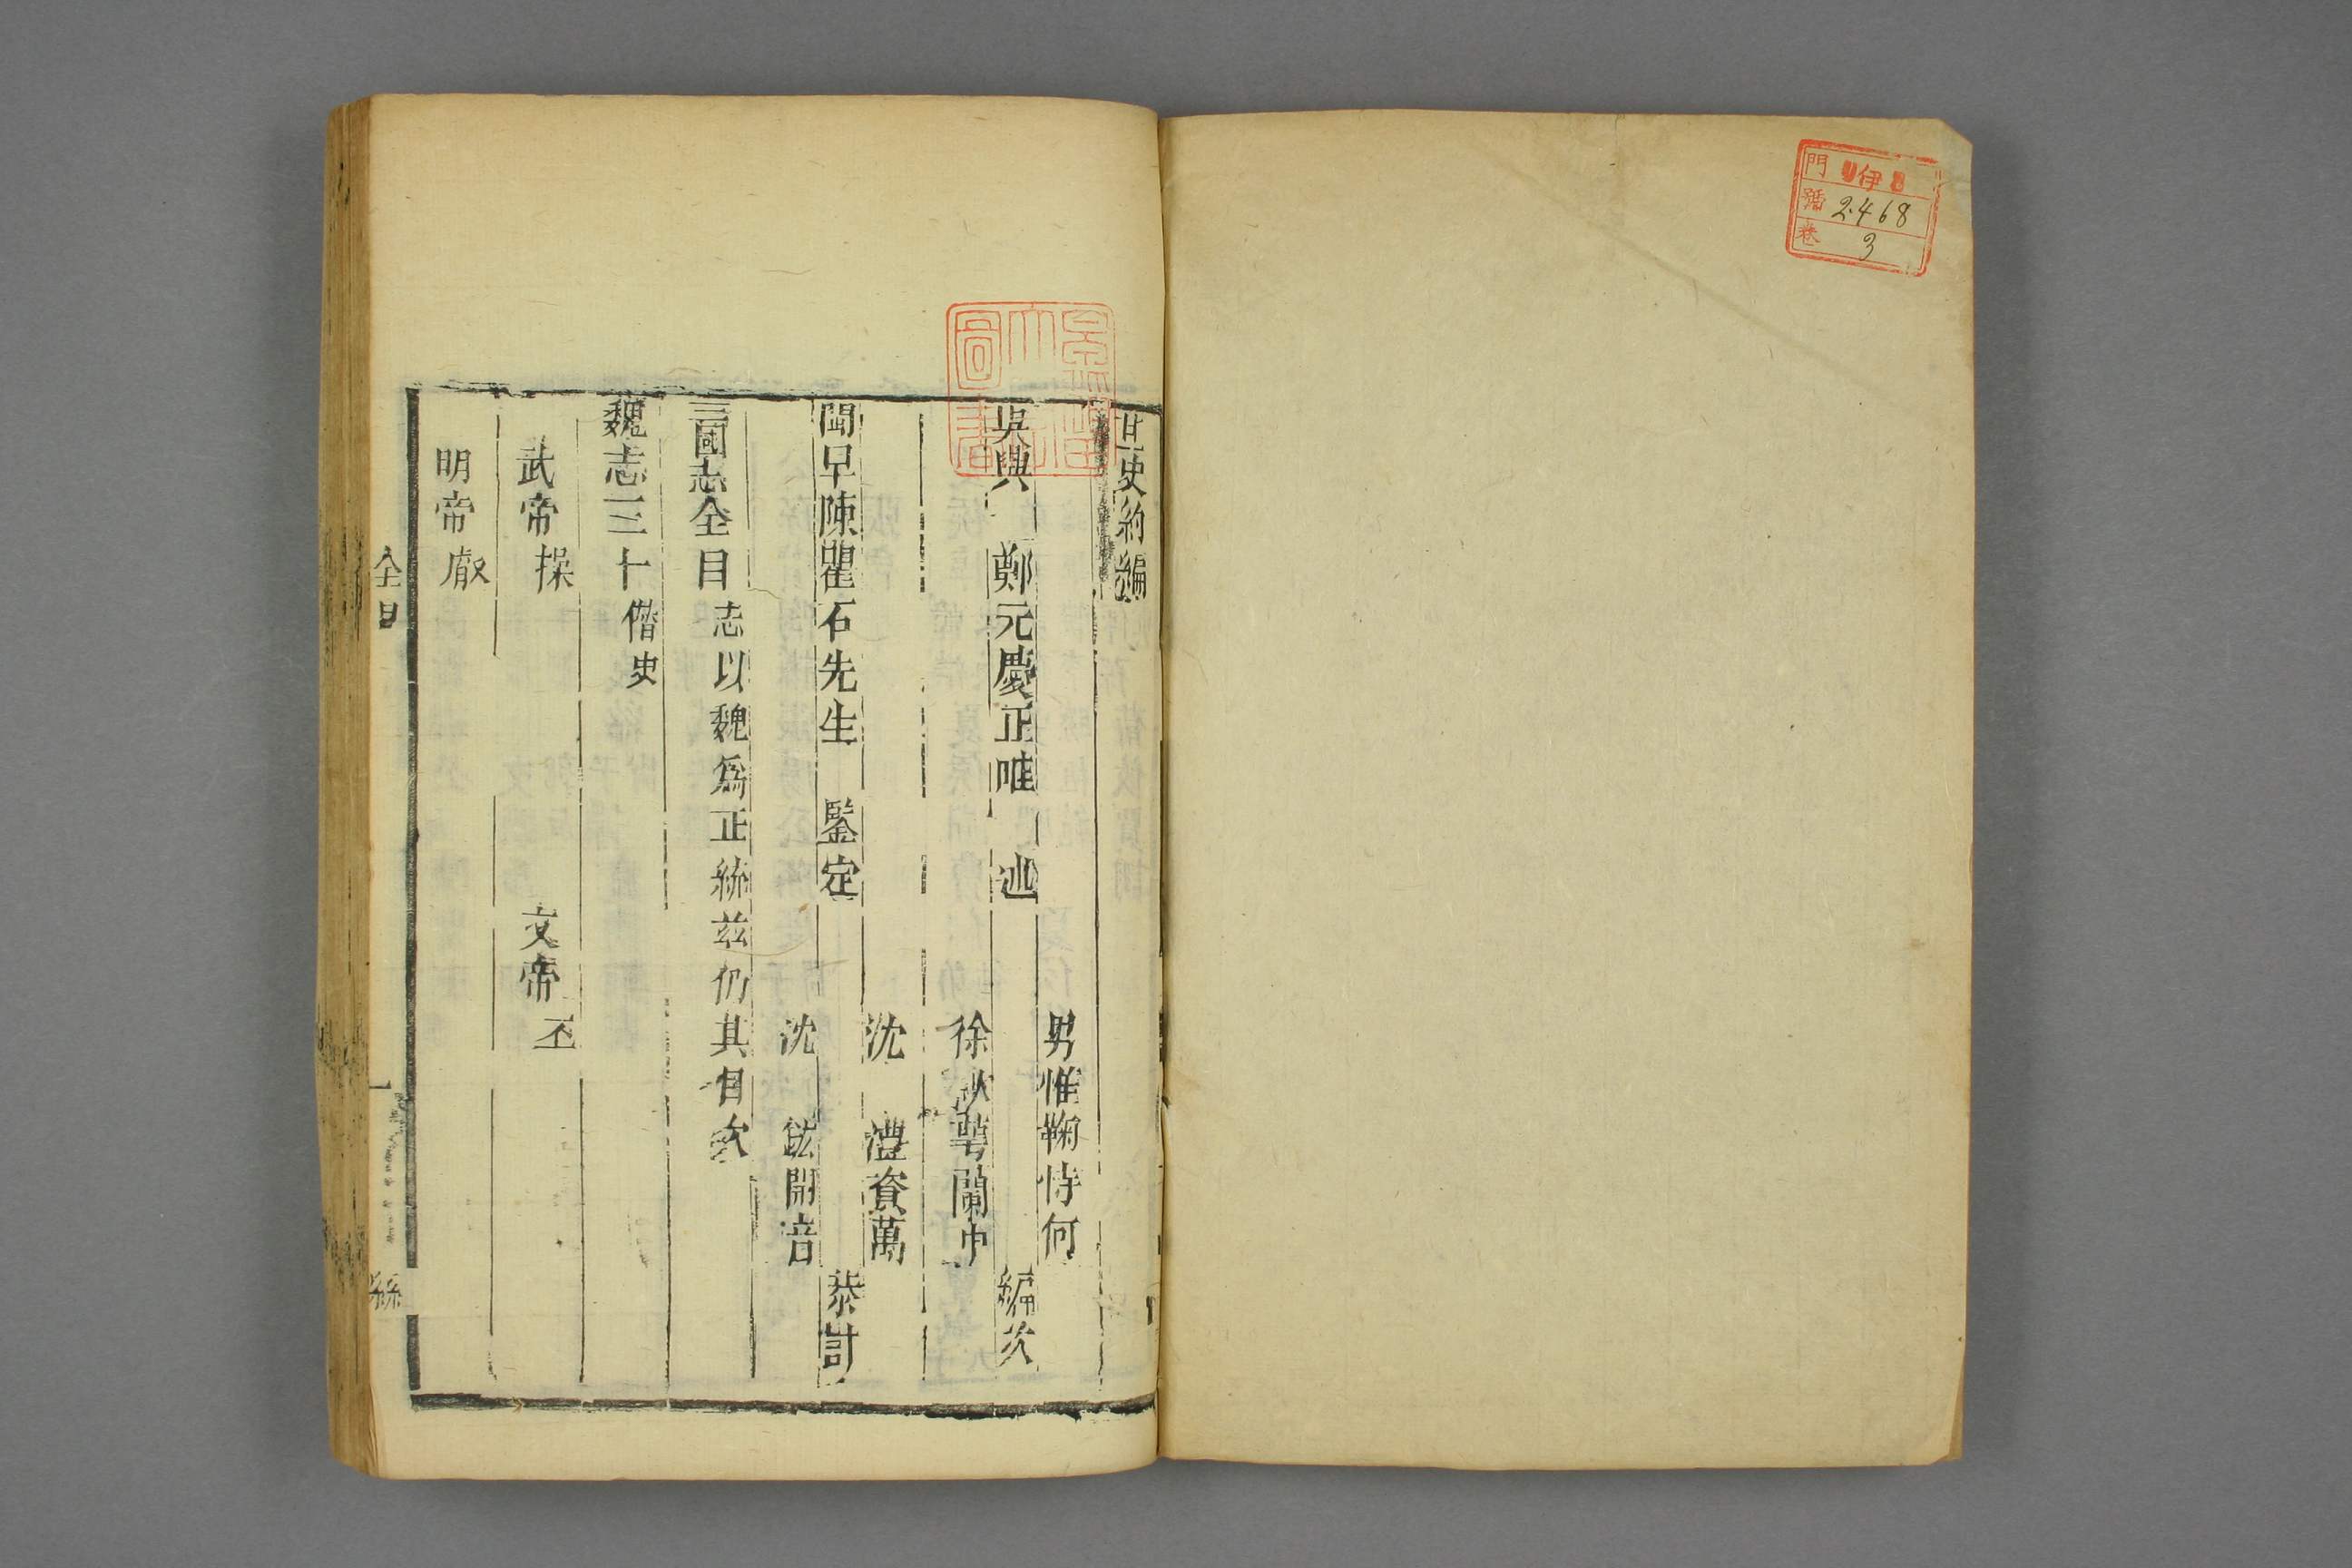 門 伊
號 2468
卷 3
廿一史約編
男惟鞠恃何
吳興 鄭元慶芷畦 述 編次
徐 蘭中
聞早陳瞿石先生 鑒定
沈 澧資萬
叅訂
沈 鋐開音
三國志全目 志以魏爲正統茲仍其目次
魏志三十 僭史
武帝操 文帝丕
明帝叡
全目 一 絲